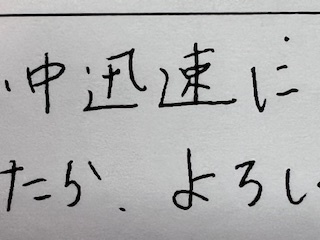 中迅速に
たら、よろし